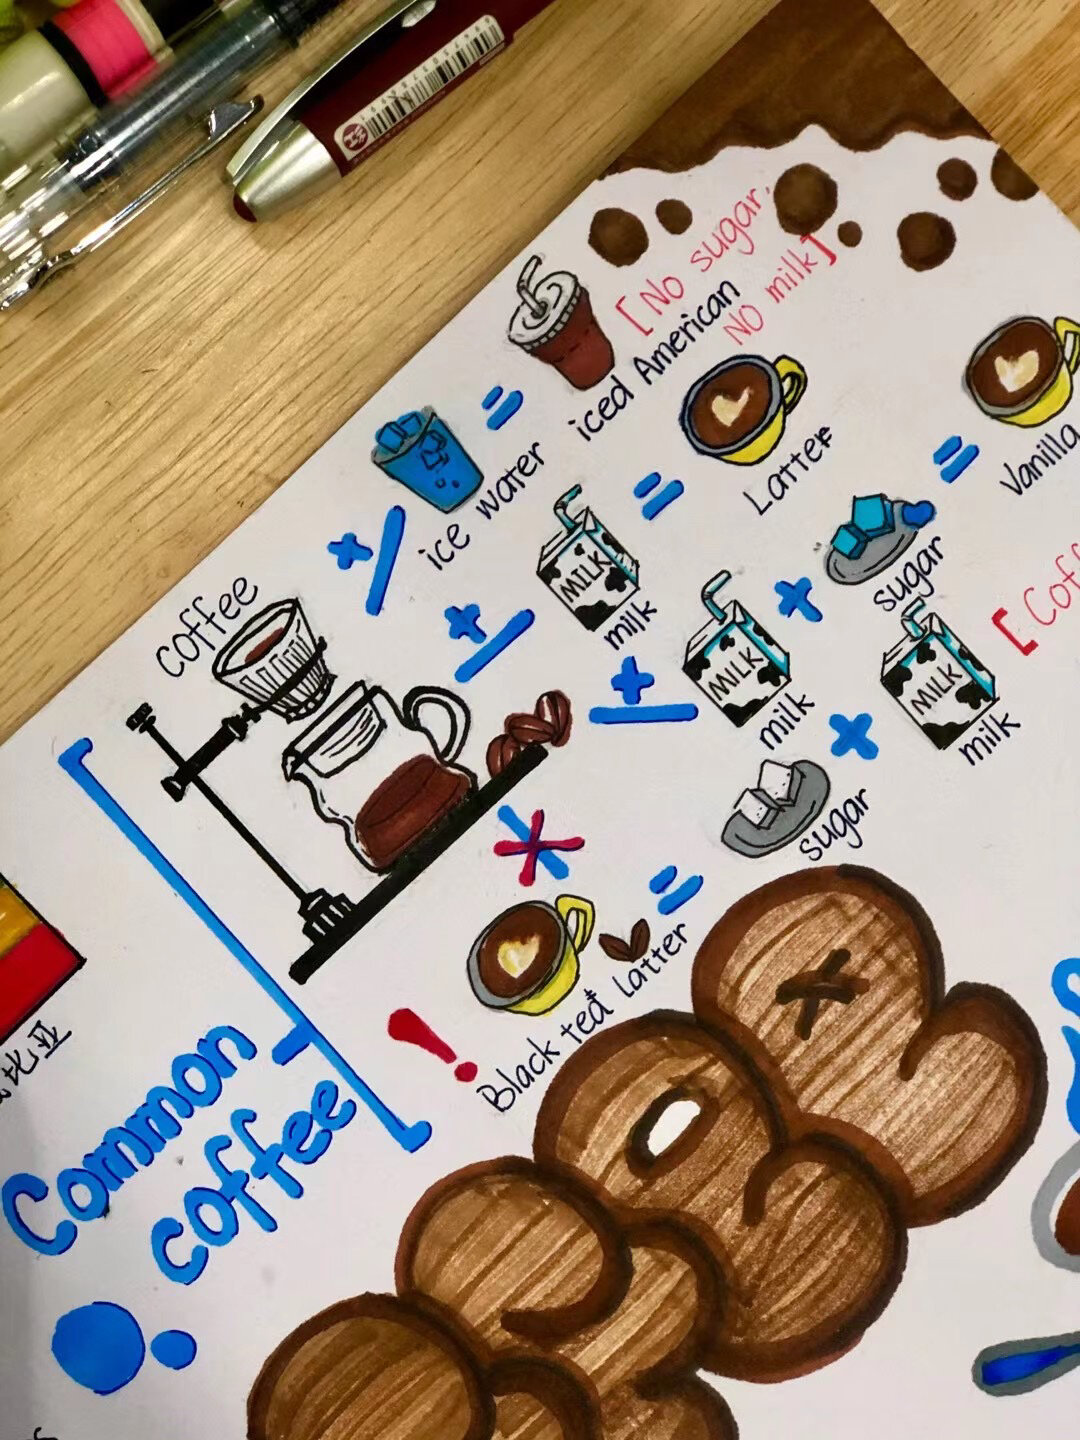 [No sugar,
NO milk]
iced American
ice water
Latter
Vanilla
coffee
MILK
milk
sugar
MILK
milk
MILK
milk
[Coff
sugar
Black tea Latter
比亚
Common
coffee